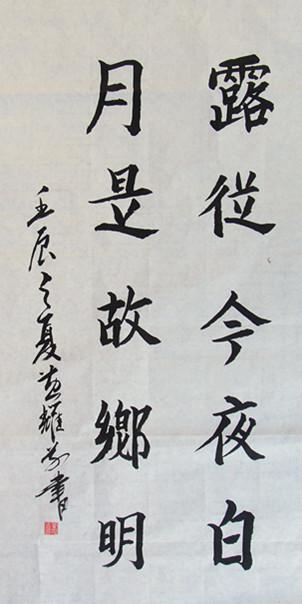 露從今夜白
月是故鄉明
壬辰之夏
耀
書